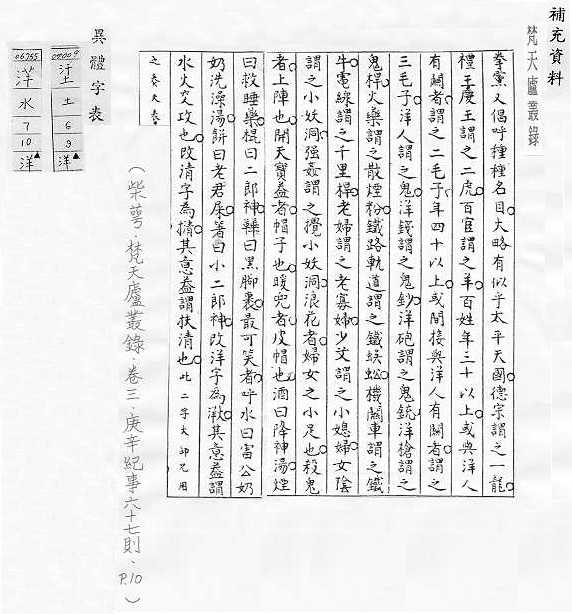 補充資料
梵天廬叢錄
拳黨又倡呼種種名目大略有似乎太平天國德宗謂之一龍
禮王慶王謂之二虎百官謂之羊百姓年三十以上或與洋人
有關者謂之二毛子年四十以上或間接與洋人有關者謂之
三毛子洋人謂之鬼洋錢謂之鬼鈔洋砲謂之鬼銃洋槍謂之
鬼桿火藥謂之散煙粉鐵路軌道謂之鐵蜈蚣機關車謂之鐵
牛電線謂之千里桿老婦謂之老寡婦少艾謂之小媳婦女陰
謂之小妖洞强姦謂之攪小妖洞浪花者婦女之小足也殺鬼
者上陣也開天寶益者帽子也暖兜者皮帽也酒曰降神湯煙
曰救睡藥棍曰二郎神鞋曰黑腳裹最可笑者呼水曰富公奶
奶洗澡湯餅曰老君屎箸曰小二郎神改洋字為𣵛其意益謂
水火交攻也改清字為擕其意益謂扶清也此二字大師兄用
之奏大奏
(柴萼.梵天廬叢錄.卷三.庚辛紀事六十七則.P.10)
異體字表
00009
汢
土
6
9
洋
06755
洋
水
7
10
洋